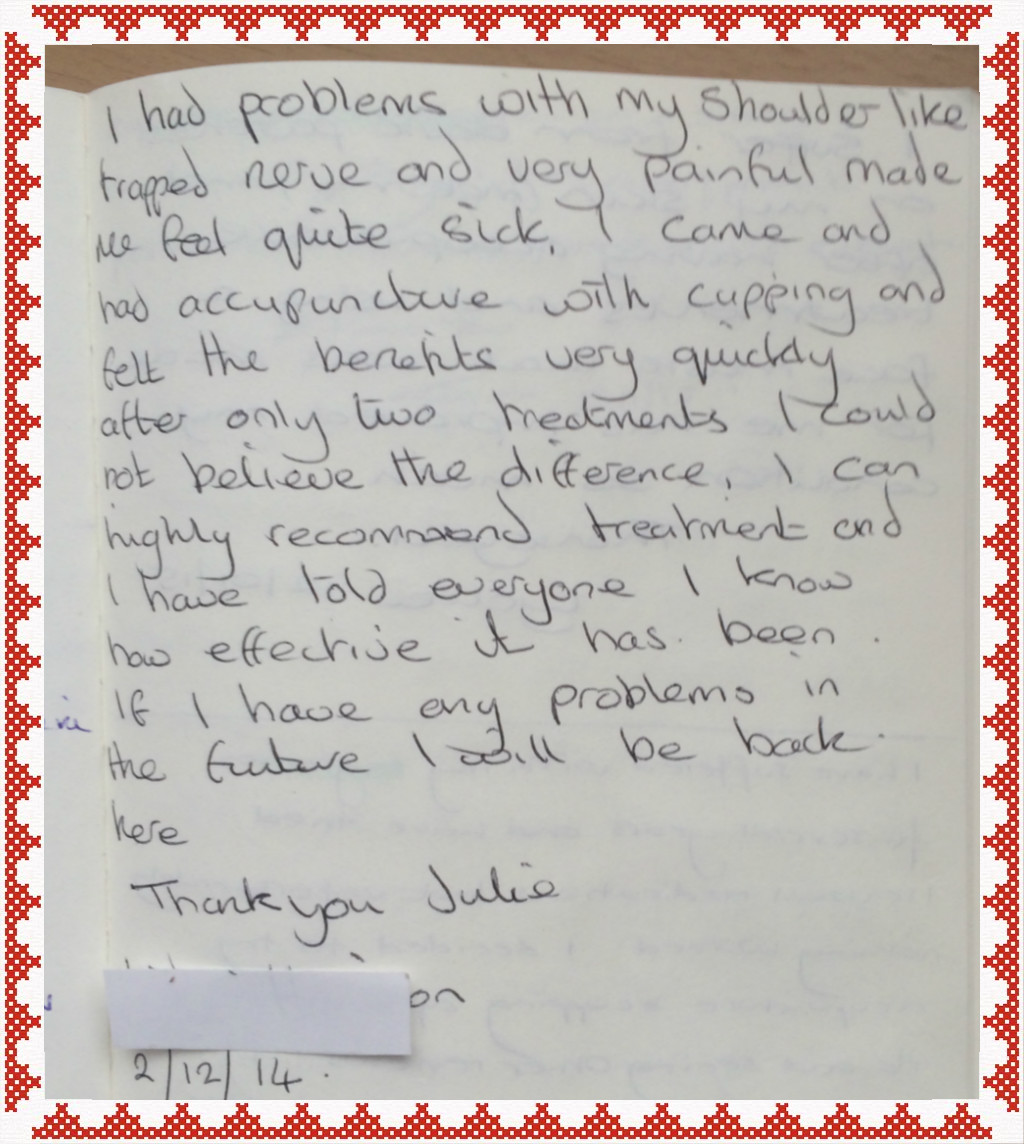 I had problems with my shoulder like
trapped nerve and very painful made
me feel quite sick. I came and
had accupuncture with cupping and
felt the benefits very quickly
after only two treatments I could
not believe the difference. I can
highly recommend treatment and
I have told everyone I know
how effective it has been.
If I have any problems in
the future I will be back.
here
Thank you Julie
on
2/12/14.